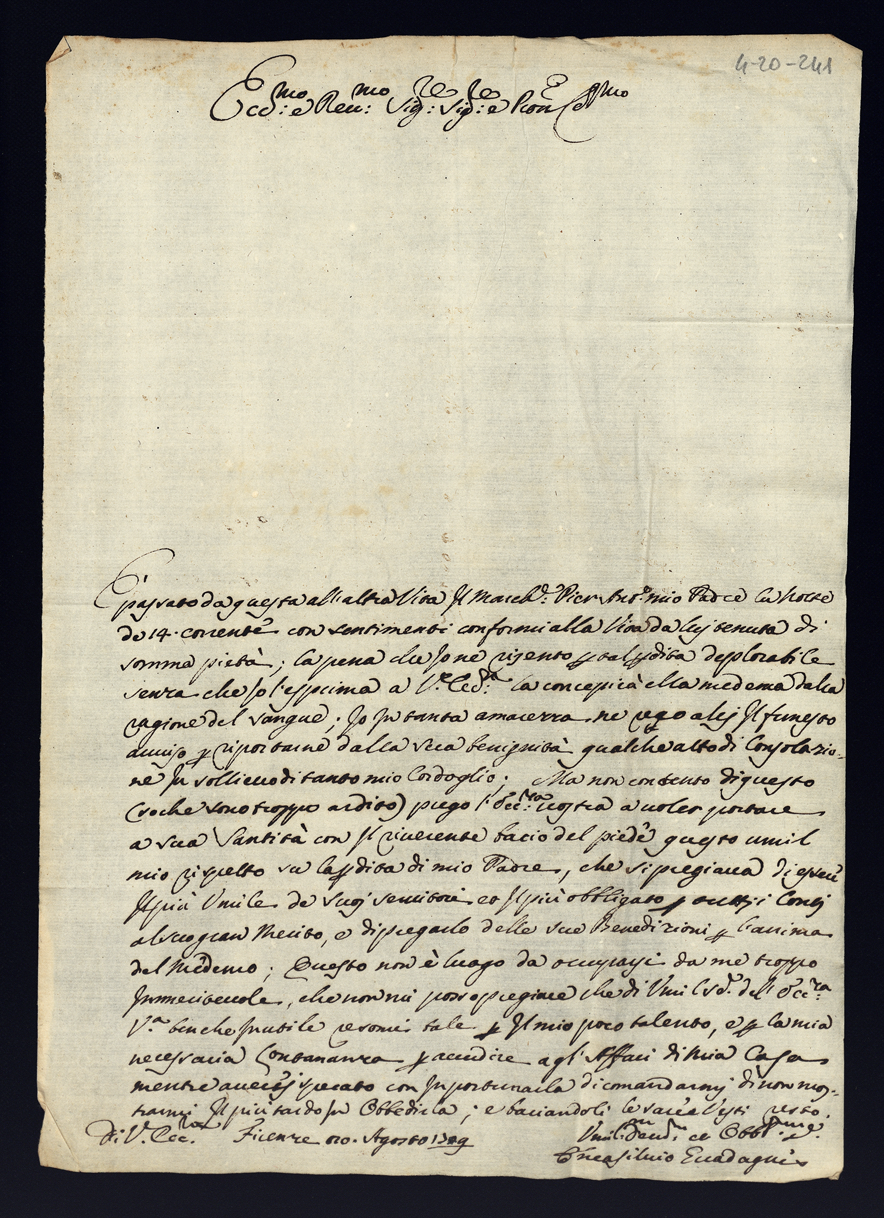 4-20-241
Ecc:mo e Reu:mo Sig:re Sig:re e Pron Col:mo
È passato da questa all'altra Vita Il March: Pier Ant.o mio Padre la Notte
de 14 corrente con sentimenti conformi alla Vita da lui tenuta di
somma pietà; la pena che Io ne risento p tal pdita deplorabile
senza che Io l'esprima a V. Ecc:a la concepirà ella medema dalla
ragione del sangue; Io in tanta amarezza ne reco a lei Il funesto
auuiso p riportarne dalla sua benignità qualche atto di Consolazio-
ne In sollieuo di tanto mio Cordoglio; Ma non contento di questo
(so che sono troppo ardito) prego l'Ecc:za Vostra a uoler portare
a sua Santità con Il riuerente bacio del piede questo umil
mio rispetto su la pdita di mio Padre, che si pregiaua di essere
Il più Umile de suoi seruitori et Il più obbligato p tutti i Conti
al suo gran Merito, e di pregarlo delle sue Benedizioni p l'anima
del Medemo; Questo non è luogo da occuparsi da me troppo
Immeriteuole, che non mi posso pregiare che di Umil S.re dell'Ecc:za
V.a benche Inutile resomi tale p Il mio poco talento, e p la mia
necessaria Lontananza p accudire agl'Affari di Mia Casa
mentre auerei sperato con Inportunarla di comandarmi di non mos-
trarmi Il più tardo In Obbedirla; e baciandoli le sacre Vesti resto.
Di V. Ecc:za Firenze 20. Agosto 1709
Umil:mo Deu:mo et Obb:mo Se:re
Enea Siluio Guadagni